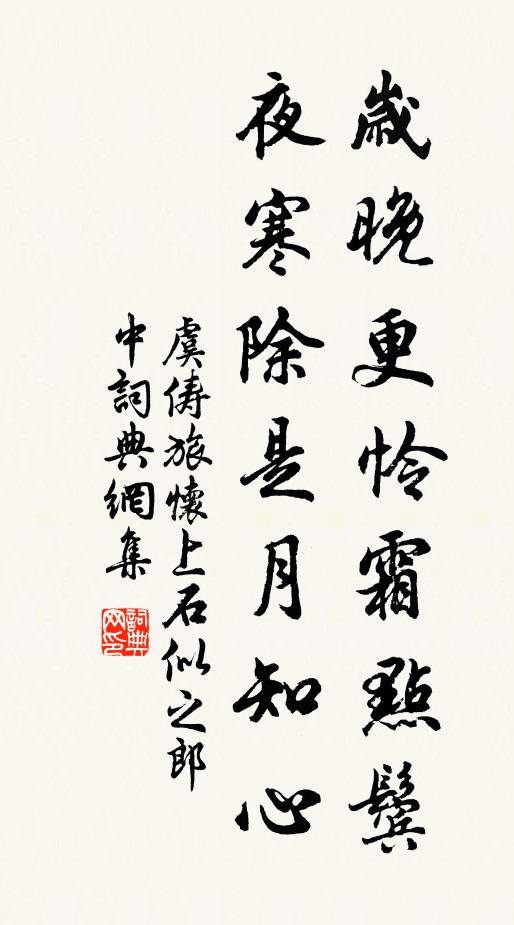 歲晚更怜霜點鬢
夜寒除是月知心
虞儔旅懷上石似之郎
中詞典網集
詞典
网印